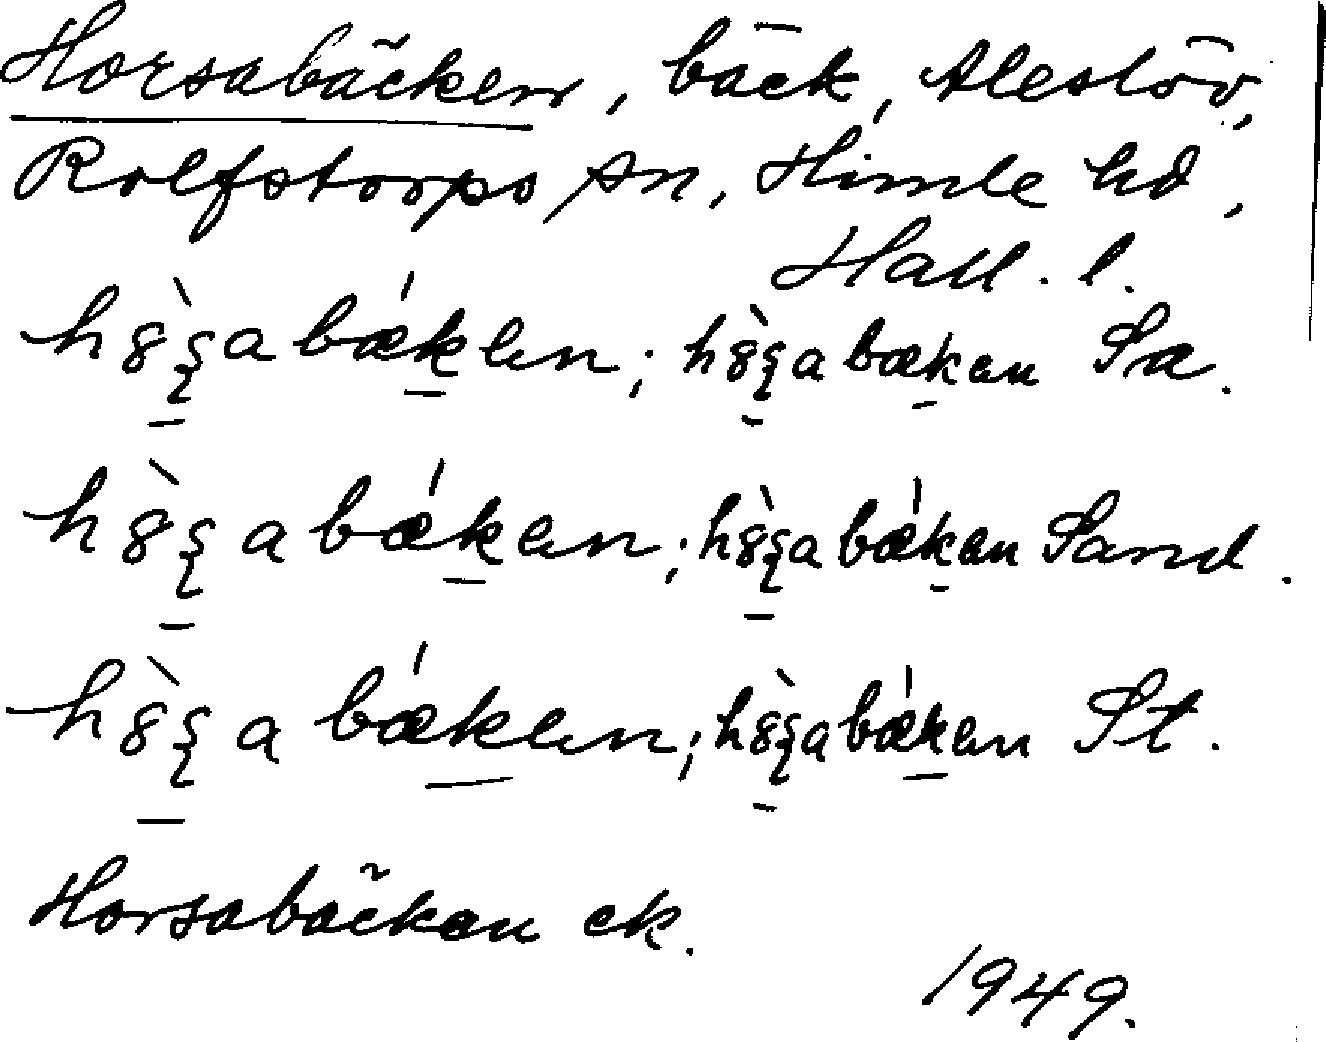 Horsabäcken, bäck, Aleslöv,
Rolfstorps sn, Himle hd,
Hall. l.
h8̀ʂabǽk̠en; h8̀ʂabæk̠en Sa.
h8̀ʂabǽk̠en; h8̀ʂabǽk̠en Sand.
h8̀ʂabǽk̠en; h8̀ʂabǽk̠en St.
Horsabäcken ek.
1949.